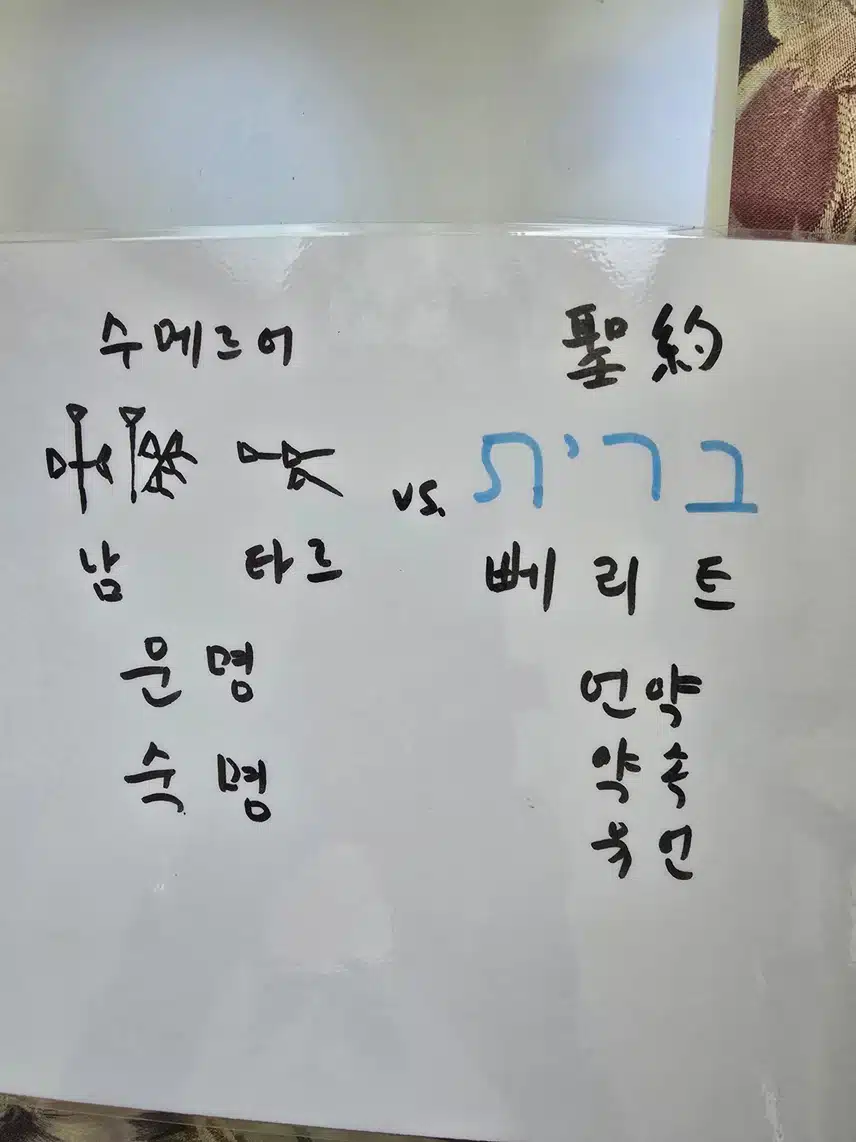 수메르어
𒉆 𒋻
남 타르
운명
숙명
vs.
聖約
ברית
뻬리트
언약
약속
유언